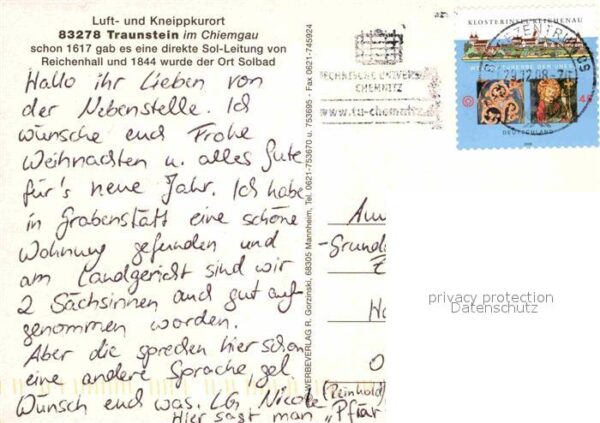 Luft- und Kneippkurort
83278 Traunstein im Chiemgau
schon 1617 gab es eine direkte Sol-Leitung von
Reichenhall und 1844 wurde der Ort Solbad
Hallo ihr Lieben von
der Nebenstelle. Ich
wünsche euch Frohe
Weihnachten u. alles Gute
für's neue Jahr. Ich habe
in Grabenstätt eine schöne
Wohnung gefunden und
am Landgericht sind wir
2 Sächsinnen auch gut auf-
genommen worden.
Aber die sprechen hier schon
eine andere Sprache, gel
Wünsch euch was. LG Nicole (Reinhold)
Hier sagt man "Pfiat
WERBEVERLAG R. Gorzinski, 68305 Mannheim, Tel. 0621-753670 u. 753695 - Fax 0621-745924
TECHNISCHE UNIVERS
CHEMNITZ
www.tu-chemnitz
KLOSTERINSEL REICHENAU
BRIEFZENTRUM 09
45
DEUTSCHLAND
-Grund
privacy protection
Datenschutz